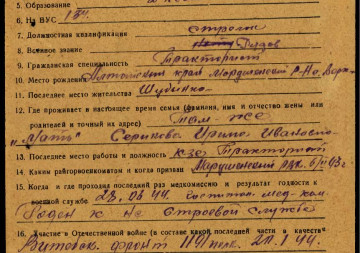 5. Образование
6. № ВУС 134
7. Должностная квалификация стрелок
8. Военное звание
9. Гражданская специальность Тракторист
10. Место рождения Алтайский край Марушенский р-но,
11. Последнее место жительства Шубенка
12. Где проживает в настоящее время семья (фамилия, имя и отчество жены или
родителей и точный адрес) там-же
"Мать" Серикова Ирина Ивановна
13. Последнее место работы и должность к-з Тракторист
14. Каким райгорвоенкоматом и когда призван Марушенский РВК. 43г
15. Когда и где проходил последний раз медкомиссию и результат годности к
военной службе 23.06 44.
Годен к не строевой службе
16. Участие в Отечественной войне (в составе какой последней части в качестве
Витебск. фронт 1191 полк. 44.